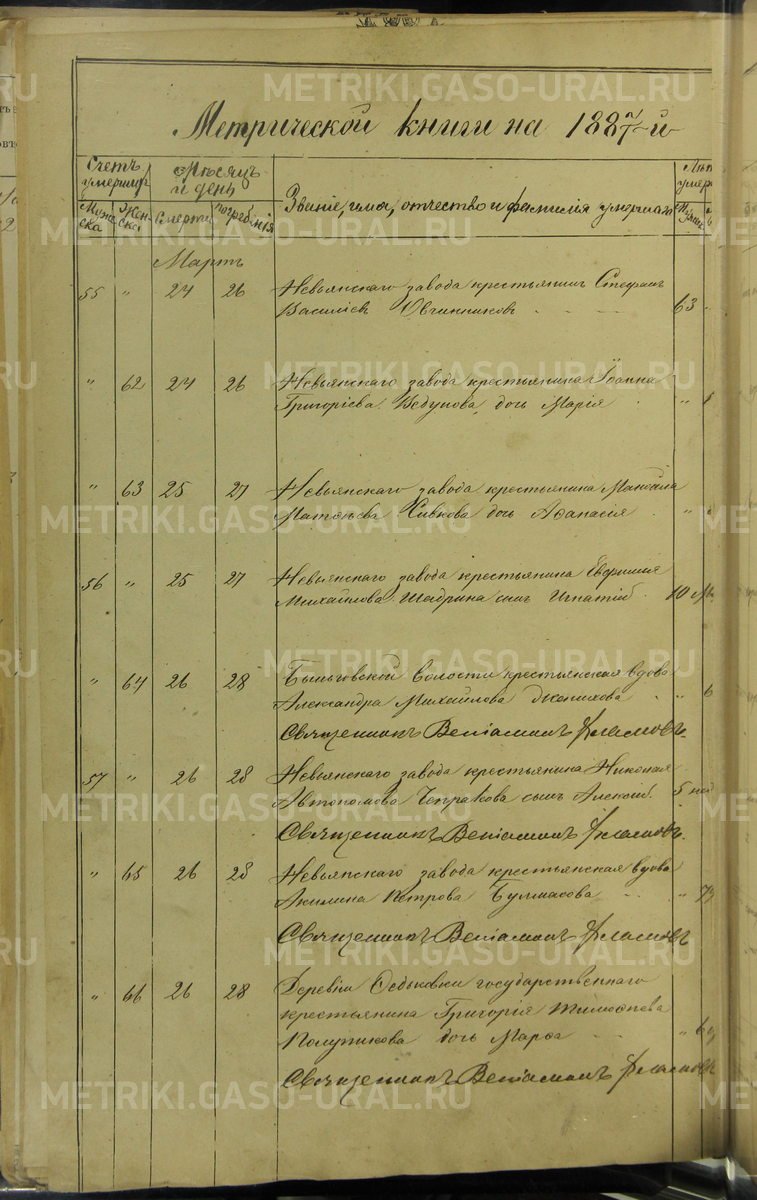 METRIKI.GASO-URAL.RU
Метрической книги на 1887й
Счетъ умершихъ
Мѣсяцъ и день
Званіе, имя, отчество и фамилія умершаго
Муже-ска
Жен-ска
Смерти
погребенія
Мартъ
55 " 24 26 Невьянскаго завода крестьянинъ Стефанъ
Василіевъ Овчинниковъ 63
" 62 24 26 Невьянскаго завода крестьянина Іоанна
Григоріева Ведунова дочь Марія "
" 63 25 27 Невьянскаго завода крестьянина Мануйла
Матѳѣева Сивкова дочь Аѳанасія "
56 " 25 27 Невьянскаго завода крестьянина Евфимія
Михайлова Шадрина сынъ Игнатій 10 м
" 64 26 28 Быньговской волости крестьянская вдова
Александра Михайлова " 6
Священникъ Веніаминъ
57 " 26 28 Невьянскаго завода крестьянина Николая
Автономова Чепракова сынъ Алексій 5 нед
Священникъ Веніаминъ
" 65 26 28 Невьянскаго завода крестьянская вдова
Акилина Петрова Булмасова " 73
Священникъ Веніаминъ
" 66 26 28 Деревни Ѳедьковки государственнаго
крестьянина Григорія Тимоѳѣева
Полузикова дочь Марѳа "
Священникъ Веніаминъ